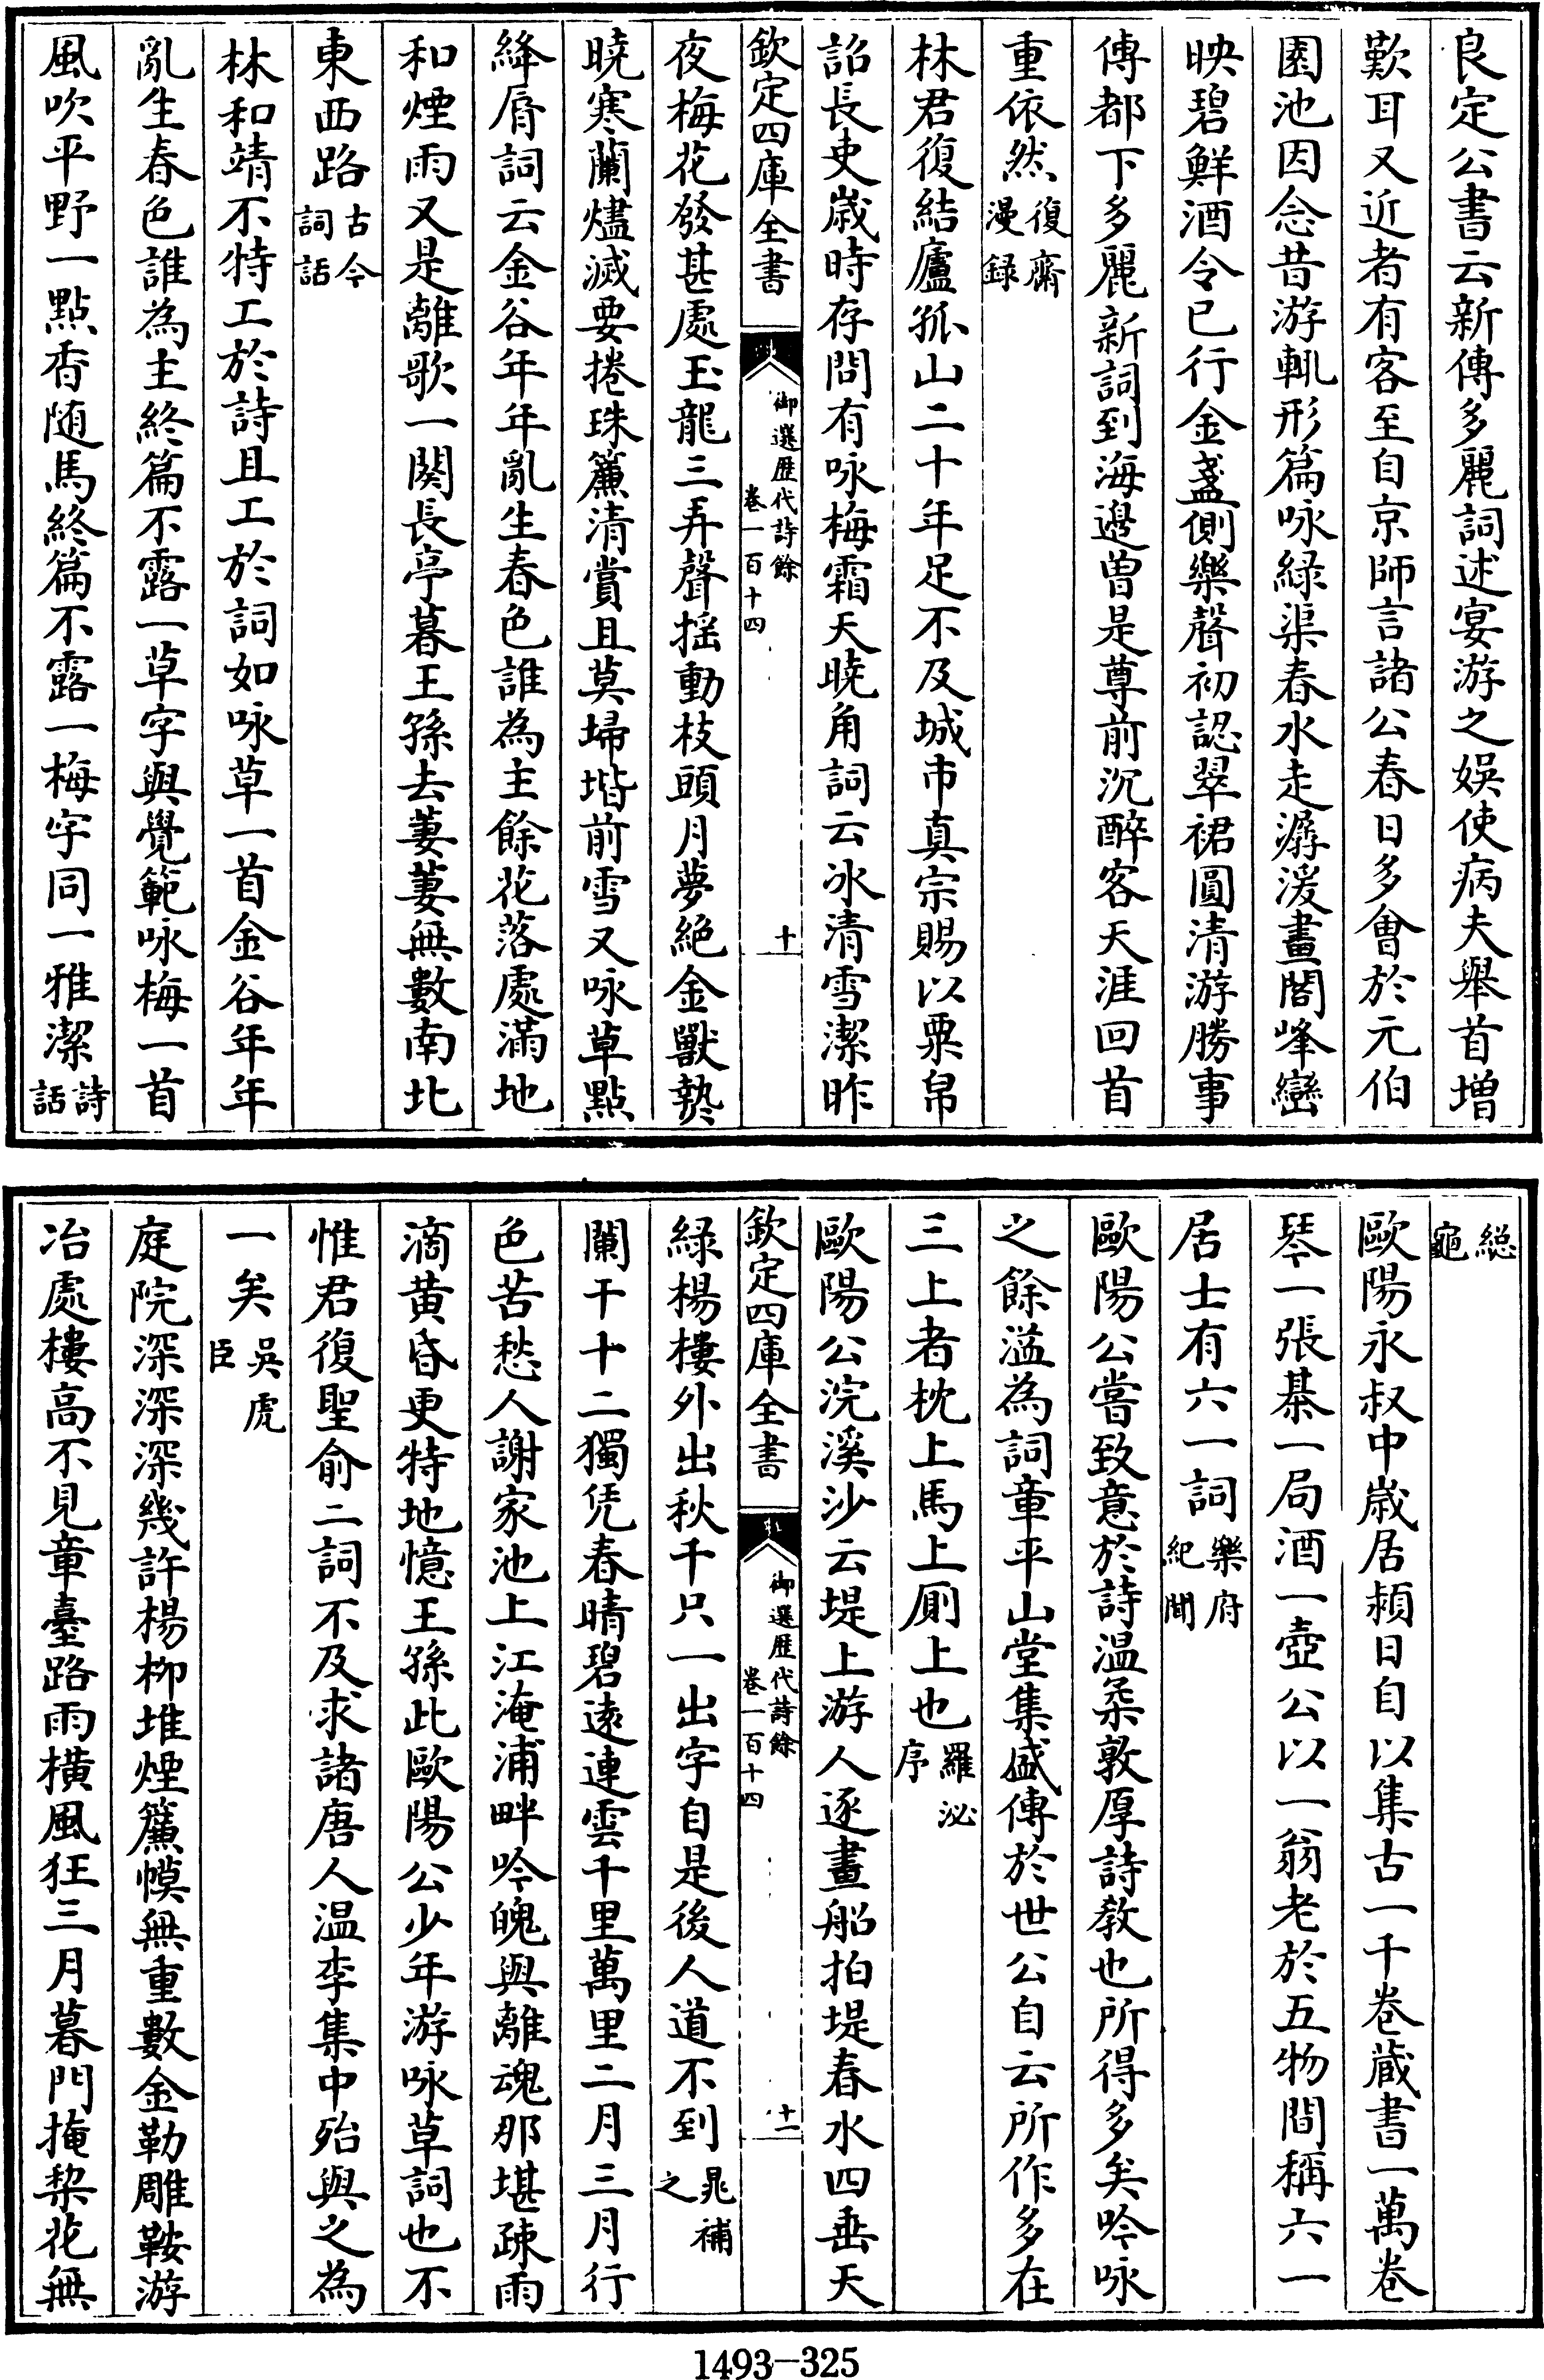 良定公書云新傳多麗詞述宴游之娛使病夫舉首増
歎耳又近者有客至自京師言諸公春日多會於元伯
園池因念昔游輒形篇咏緑渠春水走潺湲畫閣峰巒
映碧鮮酒令已行金盞側樂聲初認翠裙圓清游勝事
傳都下多麗新詞到海邊曽是尊前沉醉客天涯回首
重依然復齋漫録
林君復結廬孤山二十年足不及城市真宗賜以粟帛
詔長吏歲時存問有咏梅霜天曉角詞云冰清雪潔昨
欽定四庫全書 御選歷代詩餘 卷一百十四 十
夜梅花發甚處玉龍三弄聲揺動枝頭月夢絶金獸爇
曉寒蘭燼滅要捲珠簾清賞且莫埽堦前雪又咏草點
絳唇詞云金谷年年亂生春色誰為主餘花落處滿地
和煙雨又是離歌一闋長亭暮王孫去萋萋無數南北
東西路古今詞話
林和靖不特工於詩且工於詞如咏草一首金谷年年
亂生春色誰為主終篇不露一草字與覺範咏梅一首
風吹平野一點香随馬終篇不露一梅字同一雅潔詩話
總龜
歐陽永叔中歲居潁日自以集古一千卷藏書一萬卷
琴一張棊一局酒一壺公以一翁老於五物間稱六一
居士有六一詞樂府紀聞
歐陽公嘗致意於詩温柔敦厚詩教也所得多矣吟咏
之餘溢為詞章平山堂集盛傳於世公自云所作多在
三上者枕上馬上厠上也羅泌序
歐陽公浣溪沙云堤上游人逐畫船拍堤春水四垂天
欽定四庫全書 御選歷代詩餘 卷一百十四 十一
緑楊樓外出秋千只一出字自是後人道不到晁補之
闌干十二獨凭春晴碧遠連雲千里萬里二月三月行
色苦愁人謝家池上江淹浦畔吟魄與離魂那堪疎雨
滴黄昏更特地憶王孫此歐陽公少年游咏草詞也不
惟君復聖俞二詞不及求諸唐人温李集中殆與之為
一矣吳虎臣
庭院深深深幾許楊柳堆煙簾幙無重數金勒雕鞍游
冶處樓高不見章臺路雨横風狂三月暮門掩棃花無
1493—325